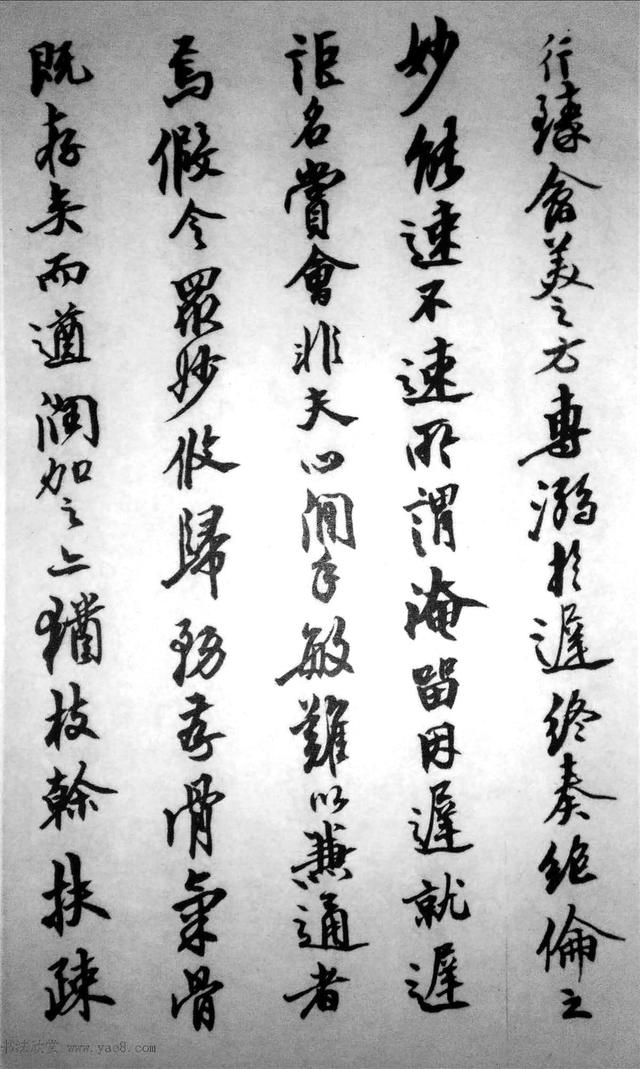 行臻會美之方專溺於遲終爽絕倫之
妙能速不速所謂淹留因遲就遲
詎名賞會非夫心閒手敏難以兼通者
焉假令眾妙攸歸務存骨氣骨
既存矣而遒潤加之亦猶枝幹扶疎
书法欣赏 www.yac8.com